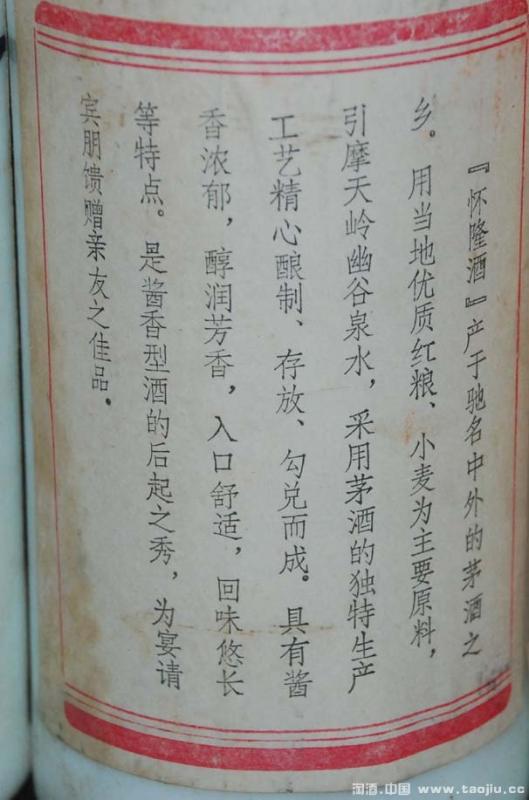 『怀隆酒』产于驰名中外的茅酒之
乡。用当地优质红粮、小麦为主要原料，
引摩天岭幽谷泉水，采用茅酒的独特生产
工艺精心酿制、存放、勾兑而成。具有酱
香浓郁，醇润芳香，入口舒适，回味悠长
等特点。是酱香型酒的后起之秀，为宴请
宾朋馈赠亲友之佳品．
淘酒.中国 www.taojiu.cc